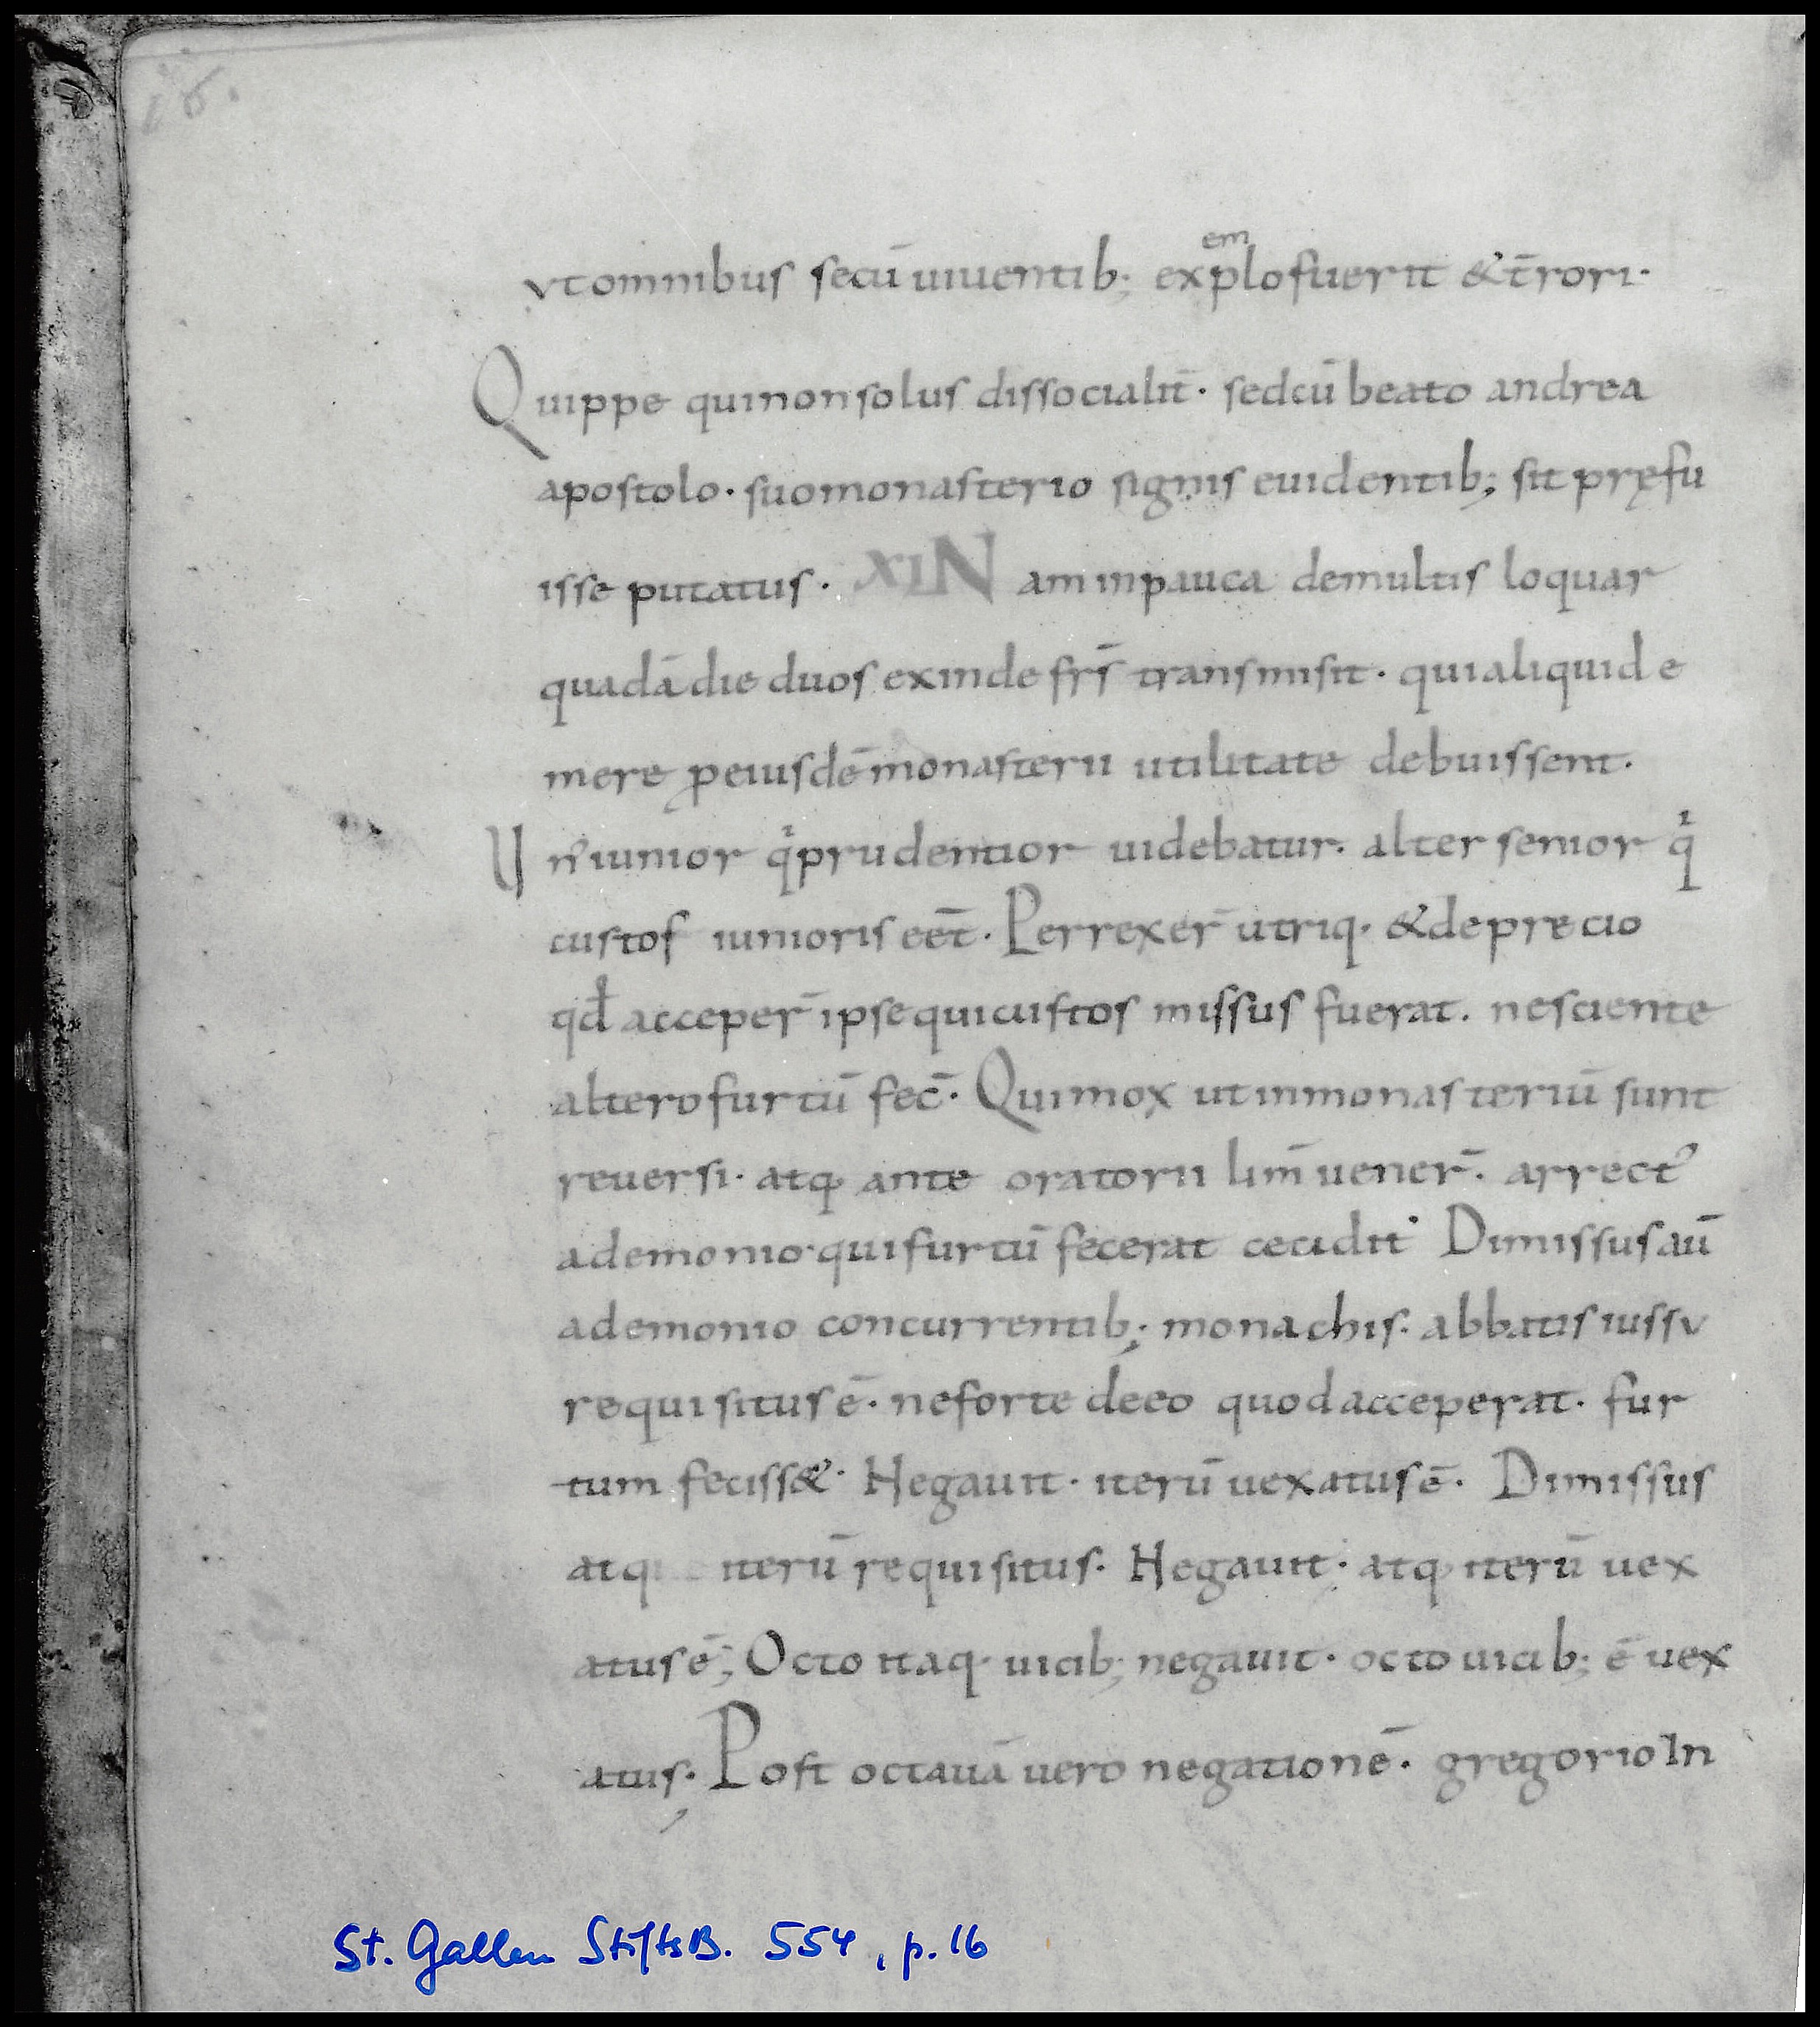 16.
vtomnibus secū uiuentib; explofuerit & t̄rori·
em
Quippe quinonsolus dissocialit̄· sedcū beato andrea
apostolo· suomonasterio signis euidentib; sit pręfu
isse putatus· XI N am inpauca demultis loquar
quadā die duos exinde frs̄ transmisit· quialiquid e
mere ꝓeiusdē monasterii utilitate debuissent·
U nꝰ iunior qͥ prudentior uidebatur· alter senior qͥ
custos iunioris eēt· Perrexer̄ utriq· & deprecio
qđ acceper̄ ipse quicustos missus fuerat· nesciente
altero furtū fec̄· Quimox ut inmonasteriū sunt
reuersi· atq· ante oratorii lim̄ uener̄· arreptꝰ
ademonio· quifurtū fecerat cecidit· Dimissus aū
ademonio concurrentib; monachis· abbatis iussv
requisitus ē· neforte deeo quodacceperat· fur
tum feciss&· Negauit· iterū uexatus ē· Dimissus
atque iterū requisitus· Negauit· atq· iterū uex
atus ē; Octo itaq· uicib; negauit· octo uicib; ē uex
atus· Post octauā uero negationē· gregorio In
St. Gallen StiftsB. 554, p. 16